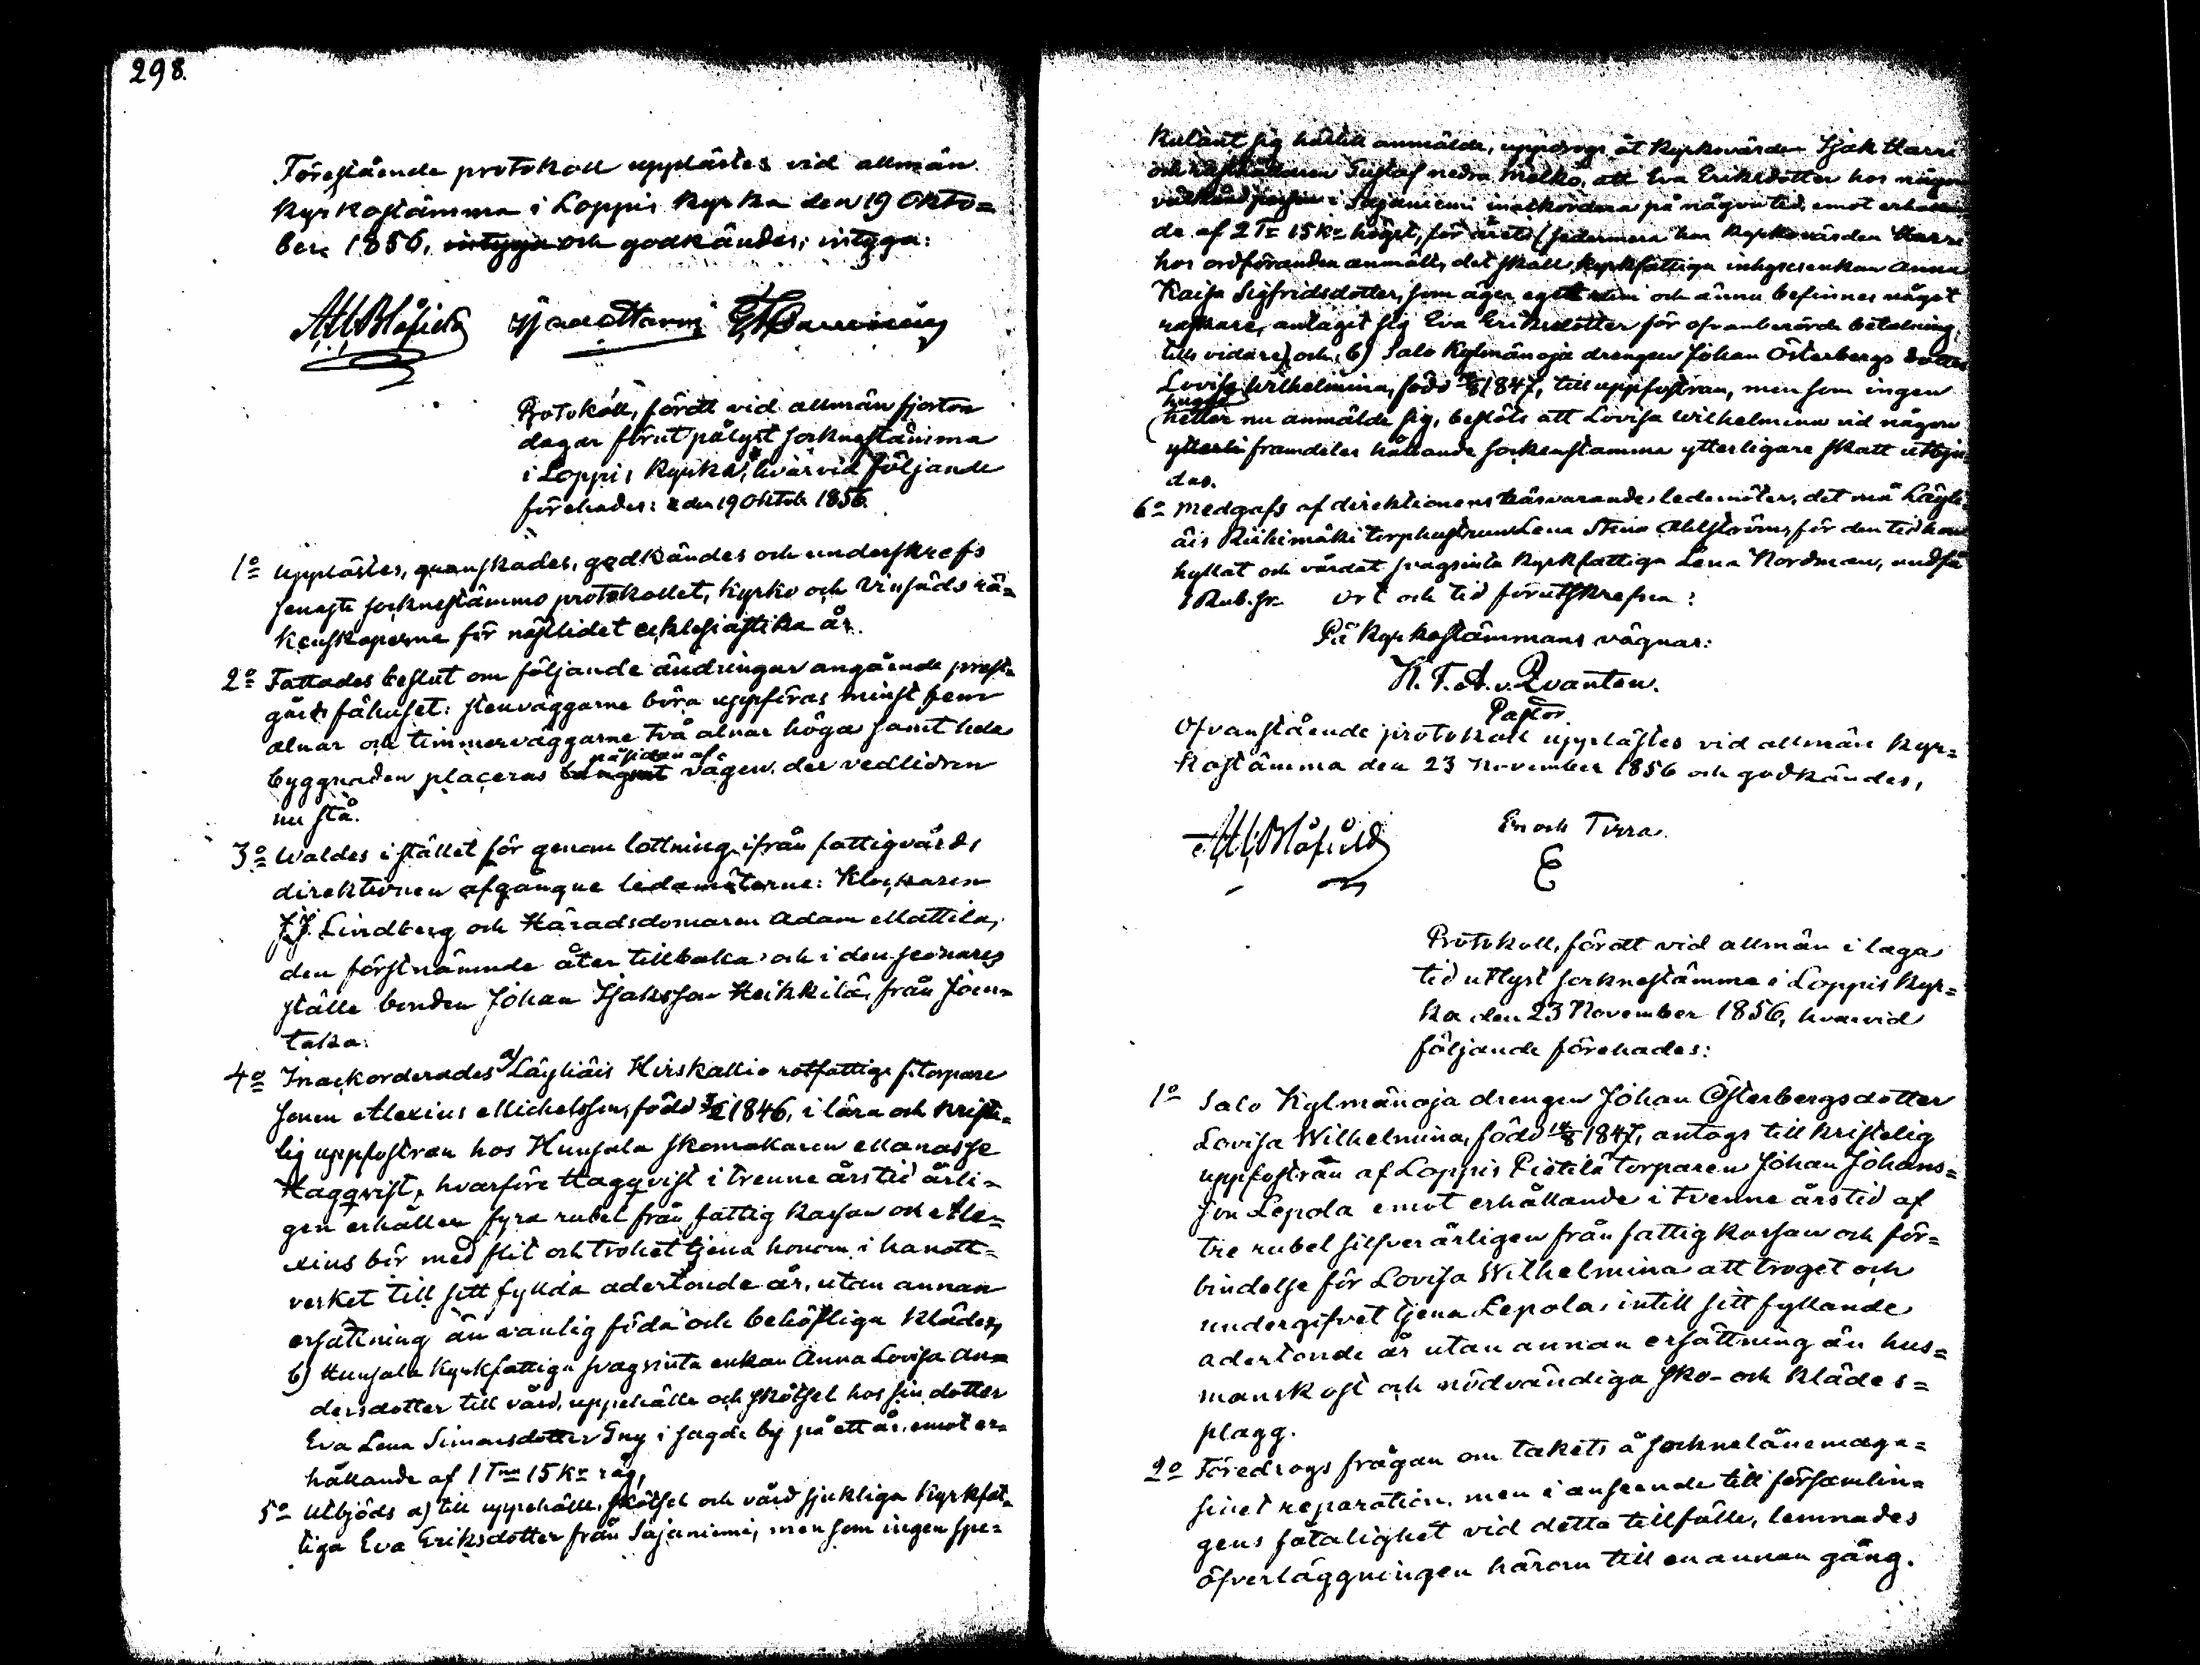 298.
Föreståënde protokoll upplästes vid allmän
Kyrkostämma i Loppis Kyrka den 19 Okto=
ber 1856, och godkändes; intyga:
Protokoll, fördt vid allmän fjorton
dagar förut pålyst socknestämma
i Loppis Kyrka, hvarvid följande
förehades: den 19 Oktob. 1856.
1o Upplästes, granskades, godkändes och underskrefs
senaste socknestämmo protokollet, Kyrko och Vinsäds rä=
kenskaperne för nästlidet ecklesiastika år.
2o Fattades beslut om följande ändringar angående prest=
gårds fähuset: stenväggarne böra uppföras minst fem
alnar och timmerväggarne två alnar höga samt hela
byggnaden placeras på sidan af vägen der vedlidren
nu stå.
3o Waldes i stället för genom lottning ifrån fattigvårds
direktionen afgångne ledamöterne: Klockaren
J.J. Lindberg och Häradsdomaren Adam Mattila,
den förstnämnde åter tillbaka och i den sednares
ställe bonden Johan Isaksson Heikkilä, från Joen=
taka.
4o Inackorderades a) Läyliäis Hirskallio rotfattige f. torpare
sonen Alexius Michelsson, född 1846, i lära och kriste=
lig uppfostran hos Hunsala skomakaren Manasse
Haqqvist, hvarföre Haqqvist i trenne års tid årli=
gen erhåller fyra rubel från fattig kassan och Ale=
xius bör med flit och trohet tjena honom i handt=
verket till sitt fyllda adertonde år, utan annan
ersättning än vanlig föda och behöfliga kläder,
b) Hunsala Kyrkfattiga svagsinta enkan Anna Lovisa An=
dersdotter till vård, uppehälle och skötsel hos sin dotter
Eva Lena Simonsdotter Gny i sagde by på ett år, emot er=
hållande af 1 Tna 15 Kr råg,
5o Utbjöds a) till uppehälle, skötsel och vård sjukliga Kyrkfat=
tiga Eva Eriksdotter från Sajaniemi, men som ingen spe=
kulant sig härtill anmälde, uppdrogs åt Kyrkovärden Isak Harri
och Gustaf nedra Melko, att Eva Eriksdotter hos någon
i Sajaniemi inackordera på någon tid, emot erhållan
de af 2 Tr 15 Kr högst, för året (sedermera har Kyrkovärden Harri
hos ordföranden anmält, det skall Kyrkfattiga inhyseenkan Anna
Kaisa Sigfridsdotter, som äger eget och ännu befinnes något
raskare, antagit sig Eva Eriksdotter för ofvanberörde betalning,
tills vidare) och, b) Salo Kylmänoja drengen Johan Österbergs dotter
Lovisa Wilhelmina, född 1847, till uppfostran, men som ingen
hugad
heller nu anmälde sig, beslöts att Lovisa Wilhelmina vid någon
framdeles hållande sockenstämma ytterligare skall utbju=
das.
6o Medgafs af direktionens härvarande ledamöter, det må Läyli=
äis Riihimäki torphustrun Lena Stina Ahlström, för den tid hon
hyllat och vårdat svagsinta Kyrkfattiga Lena Nordman, undfå
1 Rub. sr. Ort och tid förutskrefna:
På Kyrkostämmans vägnar:
K. F. A. v. Qvanten.
Pastor.
Ofvanstående protokoll upplästes vid allmän Kyr=
kostämma den 23 November 1856 och godkändes,
Enoch Tirra.
E
Protokoll, fördt vid allmän i laga
tid utlyst socknestämma i Loppis Kyr=
ka den 23 November 1856, hvarvid
följande förehades:
1o Salo Kylmänoja drengen Johan Österbergs dotter
Lovisa Wilhelmina, född 14/8 1847, antogs till kristelig
uppfostran af Loppis Pietilä torparen Johan Johans=
son Lepola emot erhållande i tvenne års tid af
tre rubel silfver årligen från fattig kassan och för=
bindelse för Lovisa Wilhelmina att troget och
undergifvet tjena Lepola, intill sitt fyllande
adertonde år utan annan ersättning än hus=
manskost och nödvändiga sko- och klädes=
plagg.
2o Föredrogs frågan om takets å socknelånemaga=
sinet reparation, men i anseende till församlin=
gens fåtalighet vid detta tillfälle, lemnades
öfverläggningen härom till en annan gång.